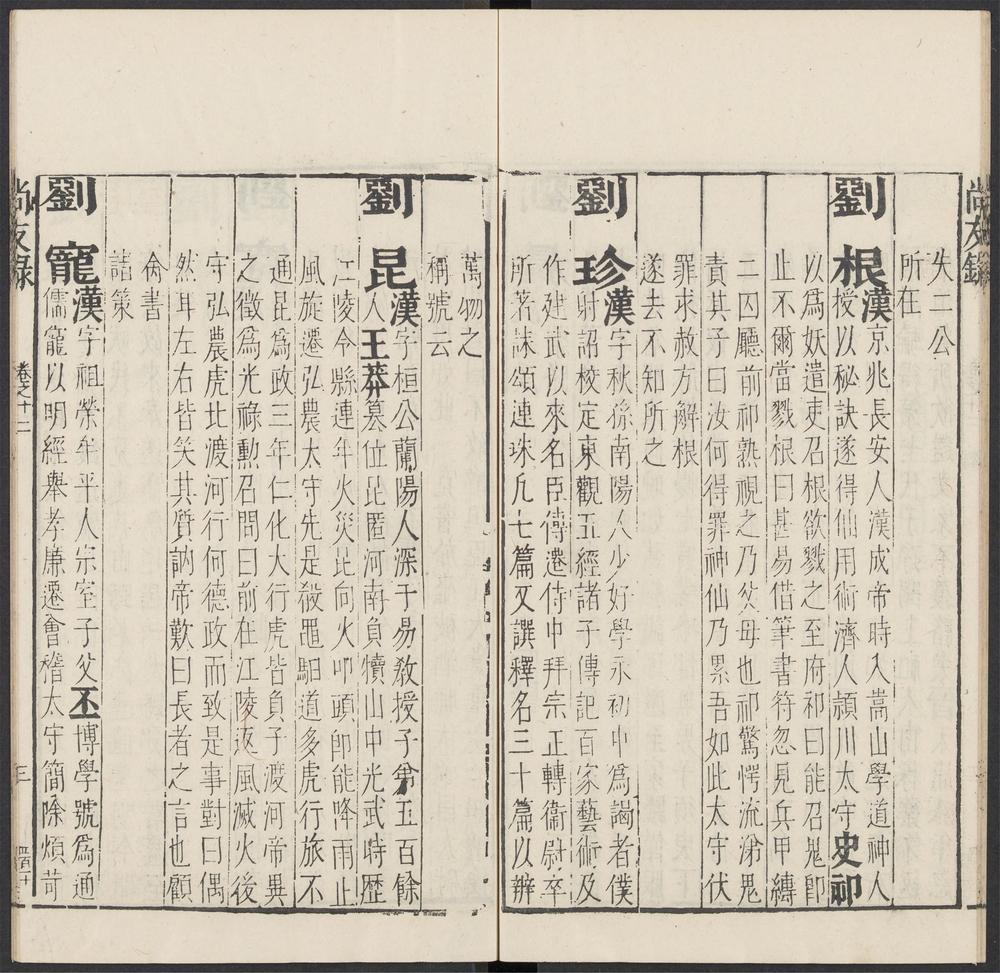 尚友錄
失二公
所在
劉根漢京兆長安人漢成帝時入嵩山學道神人
授以秘訣遂得仙用術濟人潁川太守史祁
以爲妖遣吏召根欲戮之至府祁曰能召鬼卽
止不爾當戮根曰甚易借筆書符忽見兵甲縳
二囚廳前祁熟視之乃父母也祁驚愕流涕鬼
責其子曰汝何得罪神仙乃累吾如此太守伏
罪求赦方解根
遂去不知所之
劉珍漢字秋孫南陽人少好學永初中爲謁者僕
射詔校定東觀五經諸子傳記百家藝術及
作建武以來名臣傳遷侍中拜宗正轉衞尉卒
所著誄頌連珠凡七篇又譔釋名三十篇以辨
萬物之
稱號云
劉昆漢字桓公蘭陽人深于易敎授子弟五百餘
人王莽篡位昆匿河南負犢山中光武時歷
江陵令縣連年火災昆向火叩頭卽能降雨止
風旋遷弘農太守先是殺黽駰道多虎行旅不
通昆爲政三年仁化大行虎皆負子渡河帝異
之徵爲光祿勳召問曰前在江陵返風滅火後
守弘農虎北渡河行何德政而致是事對曰偶
然耳左右皆笑其質訥帝歎曰長者之言也顧
命書
諸策
劉寵漢字祖榮牟平人宗室子父丕博學號爲通
儒寵以明經舉孝廉遷會稽太守簡除煩苛
尚友錄
卷之十二
三